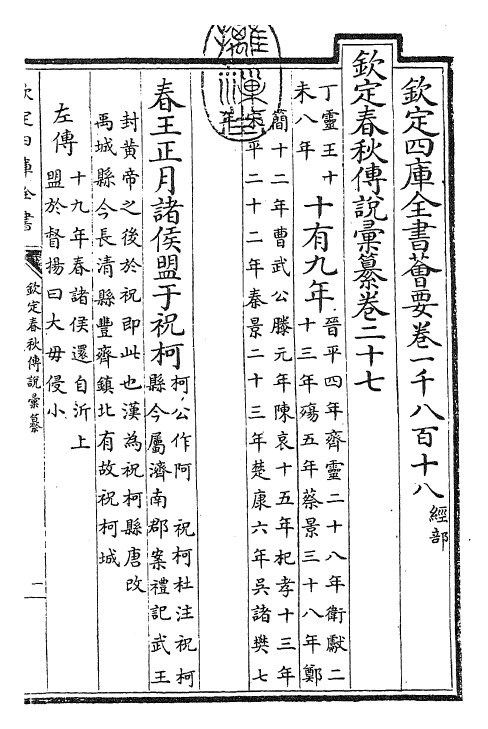 欽定四庫全書薈要卷一千八百十八 經部
欽定春秋傳說彙纂卷二十七
丁未 靈王十八年 十有九年 晉平四年齊靈二十八年衛獻二
十三年殤五年蔡景三十八年鄭
簡十二年曹武公滕元年陳哀十五年杞孝十三年
平二十二年秦景二十三年楚康六年吳諸樊七
年
春王正月諸侯盟于祝柯 柯公作阿 祝柯杜注祝柯
縣今屬濟南郡案禮記武王
封黃帝之後於祝即此也漢為祝柯縣唐改
禹城縣今長清縣豐齊鎮北有故祝柯城
左傳 十九年春諸侯還自沂上
盟於督揚曰大毋侵小
欽定四庫全書
欽定春秋傳說彙纂
一